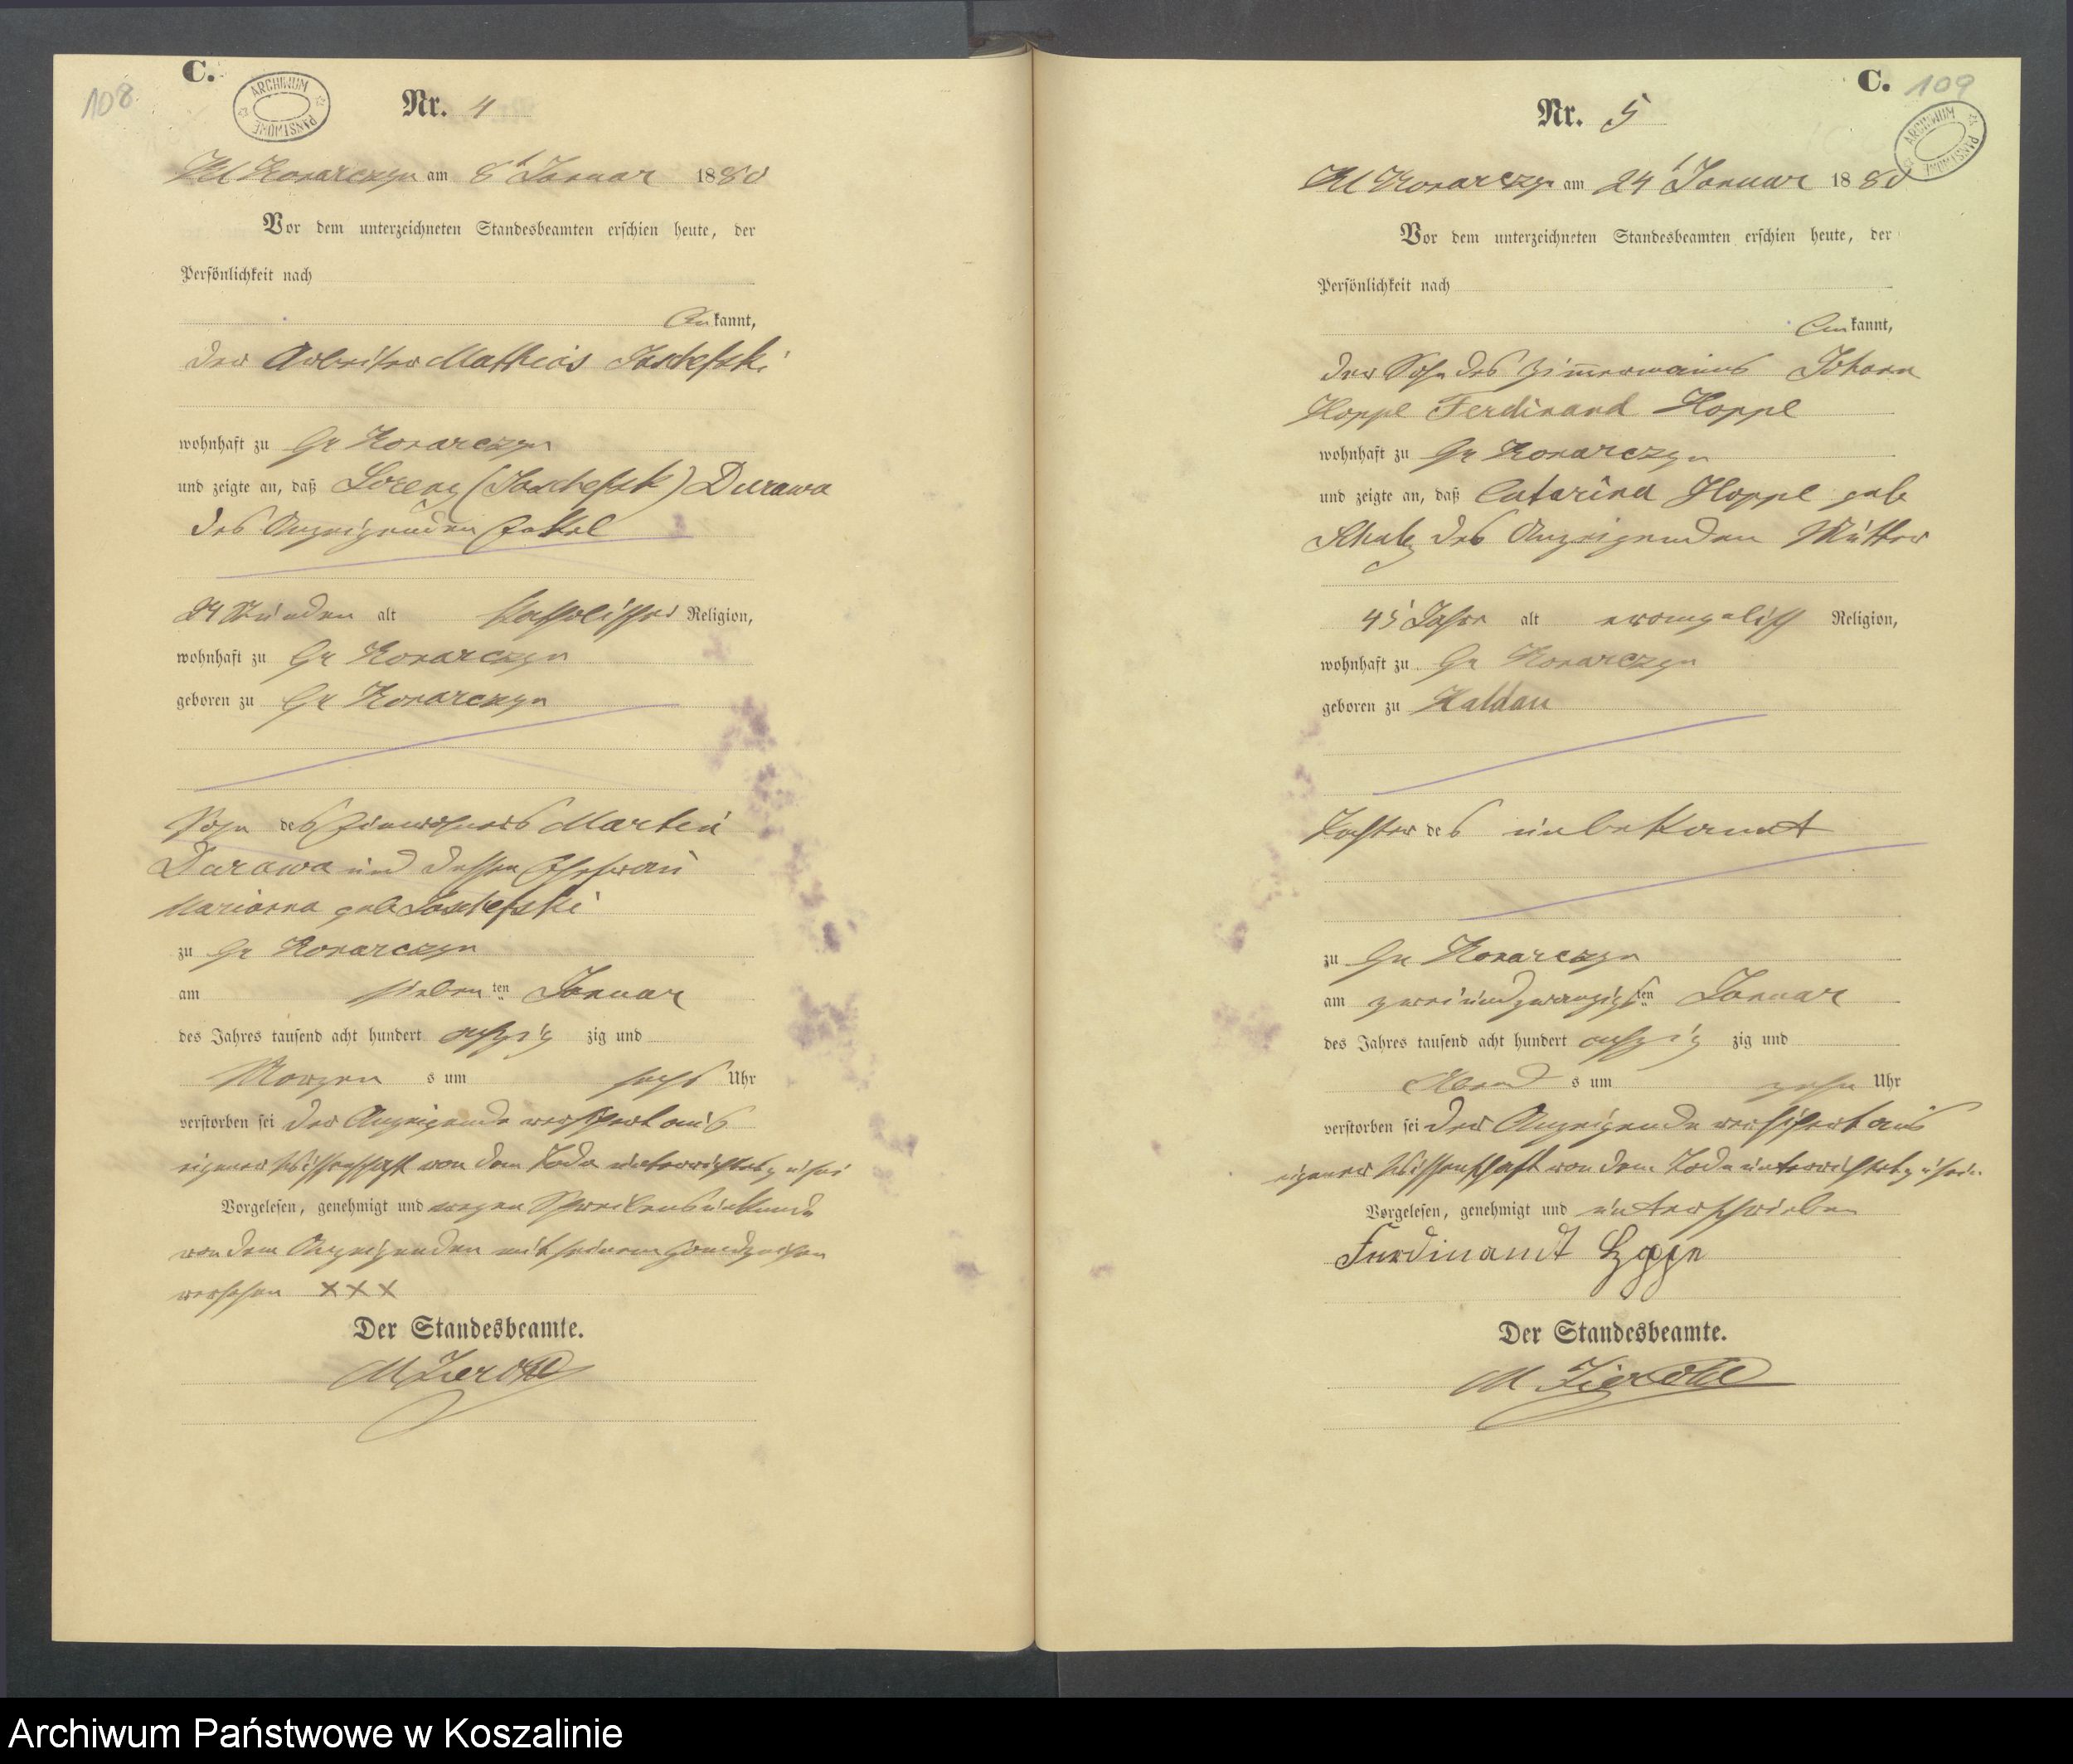 108
C.
ARCHIWUM PAŃSTWOWE
Nr. 4
Kl Konarczyn am 8t Januar 1880
Vor dem unterzeichneten Standesbeamten erschien heute, der
Persönlichkeit nach
kannt,
der Arbeiter Mathias
wohnhaft zu Gr Konarczyn
und zeigte an, daß Lorenz Durawa
des Anzeigenden Enkel
24 Stunden alt katholischer Religion,
wohnhaft zu Gr Konarczyn
geboren zu Gr Konarczyn
Sohn des Einwohners Martin
Durawa und dessen Ehefrau
Marianna geb
zu Gr Konarczyn
am sieben ten Januar
des Jahres tausend acht hundert achzig zig und
Morgen s um sechs Uhr
verstorben sei der Anzeigende versichert aus
eigener Wissenschaft von dem Tode unterrichtet zu sei
Vorgelesen, genehmigt und wegen Schreibensunkunde
von dem Anzeigenden mit seinem Handzeichen
versehen XXX
Der Standesbeamte.
M
C. 109
ARCHIWUM PAŃSTWOWE
Nr. 5
Kl Konarczyn am 24t Januar 1880
Vor dem unterzeichneten Standesbeamten erschien heute, der
Persönlichkeit nach
kannt,
der Sohn des Zimmermanns Johann
Hoppe Ferdinand Hoppe
wohnhaft zu Gr Konarczyn
und zeigte an, daß Catarina Hoppe geb
Schulz des Anzeigenden Mutter
45 Jahre alt evangelisch Religion,
wohnhaft zu Gr Konarczyn
geboren zu Kaldau
Tochter des unbekannt
zu Gr Konarczyn
am zweiundzwanzigsten Januar
des Jahres tausend acht hundert achzig zig und
Abend s um zehn Uhr
verstorben sei der Anzeigende versichert aus
eigener Wissenschaft von dem Tode unterrichtet zu sein.
Vorgelesen, genehmigt und unterschrieben
Ferdinandt Hoppe
Der Standesbeamte.
M
Archiwum Państwowe w Koszalinie